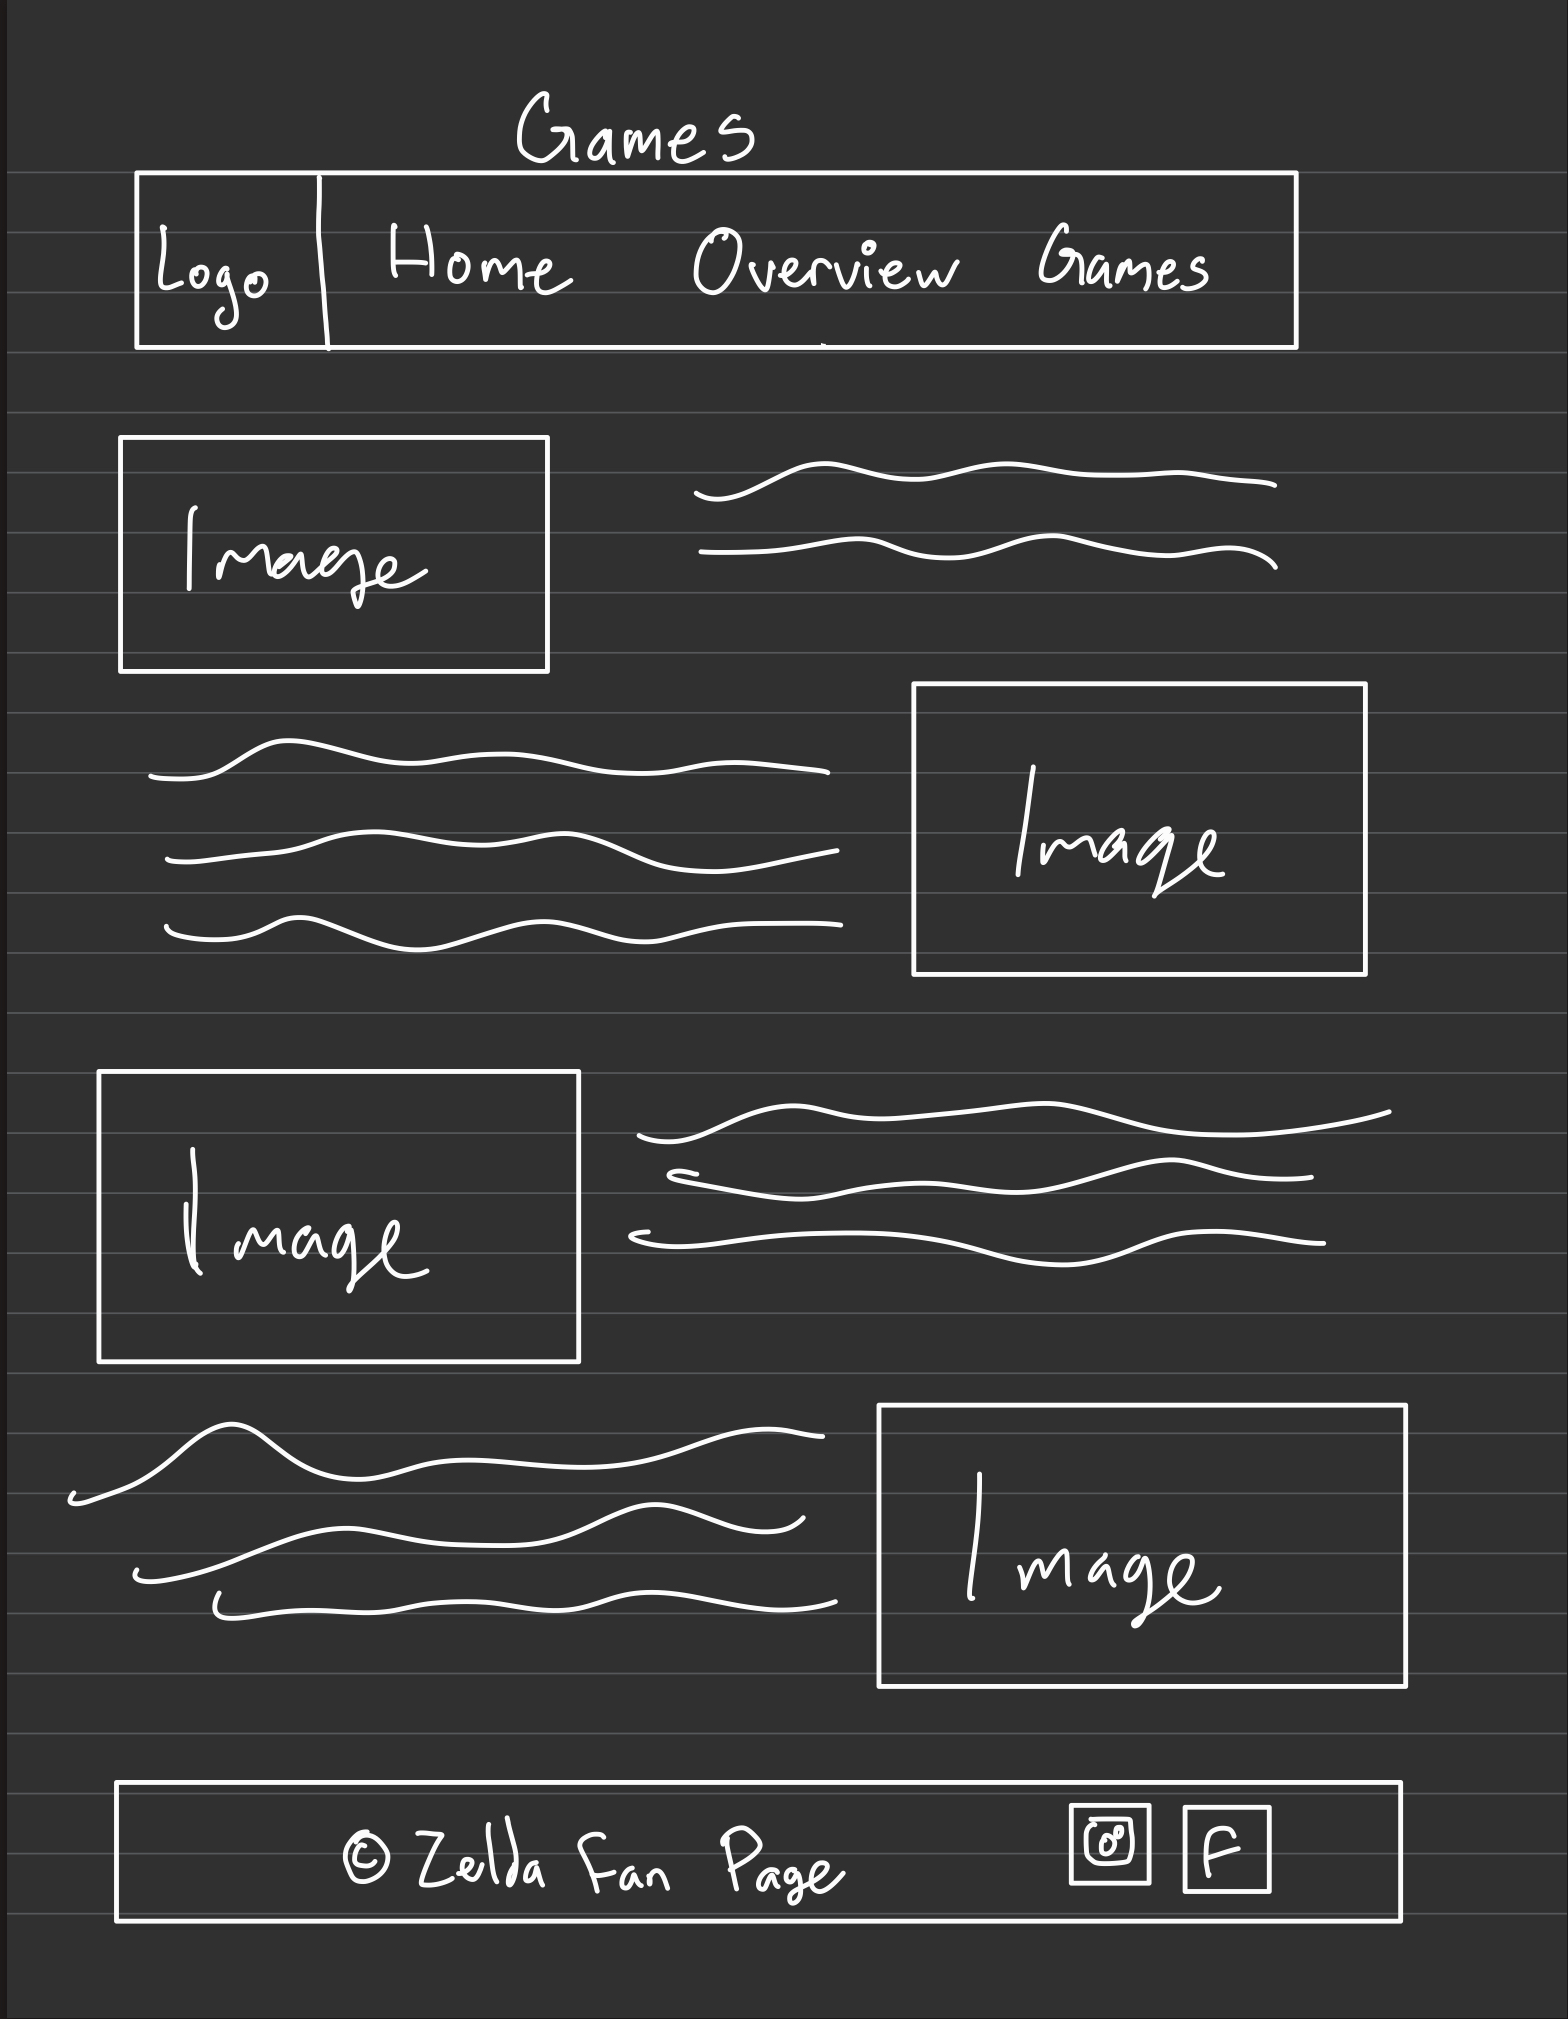 Games
Logo Home Overview Games
Image
Image
Image
Image
© Zelda Fan Page F